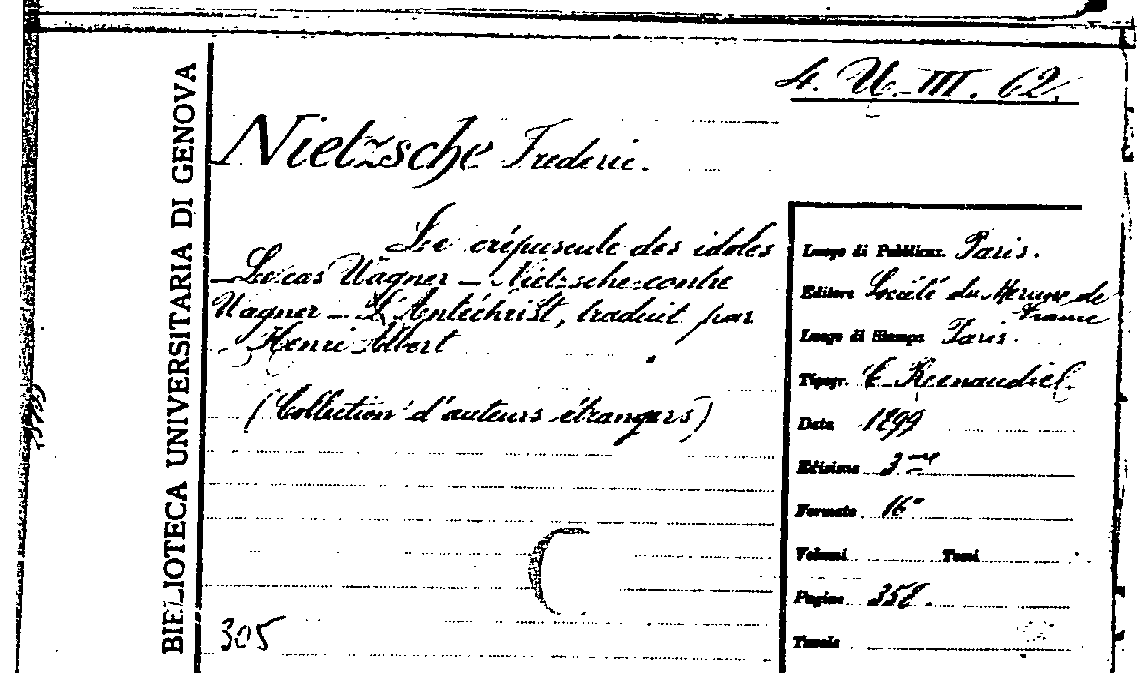 BIBLIOTECA UNIVERSITARIA DI GENOVA
4. U. III. 62.
Nietzsche Frederic.
Le crépuscule des idoles
Le cas Wagner – Nietzsche contre
Wagner – L'Antéchrist, traduit par
Henri Albert
(Collection d'auteurs étrangers)
305
Luogo di Pubblicaz. Paris.
Editore Société du Mercure de
France
Luogo di Stampa Paris.
Tipogr.
Data 1899
Edizione 3me
Formato 16°
Volumi Tomi
Pagine 358.
Tavole